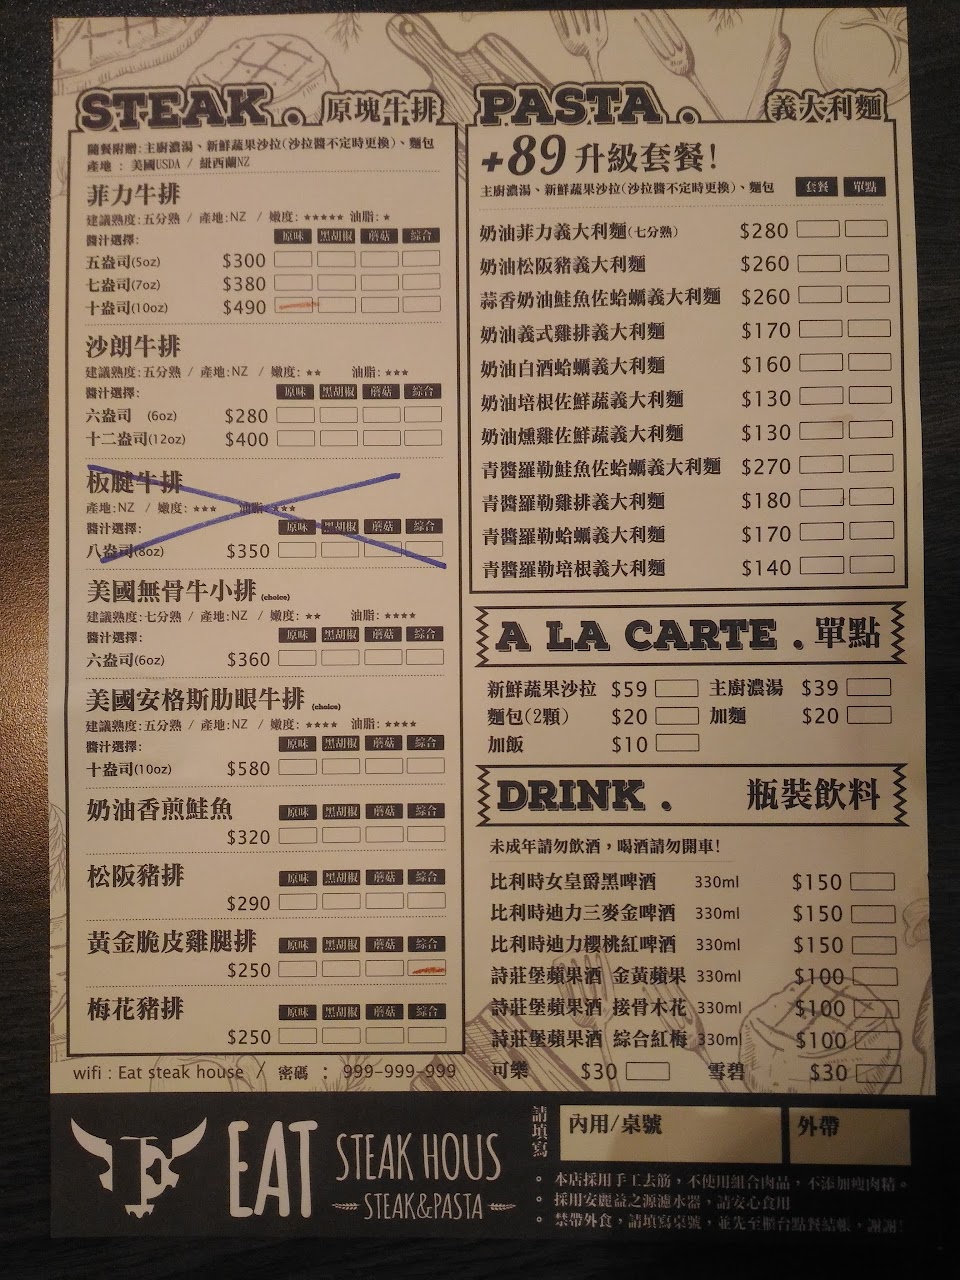 STEAK . 原塊牛排
隨餐附贈:主廚濃湯、新鮮蔬果沙拉(沙拉醬不定時更換)、麵包
產地 : 美國USDA / 紐西蘭NZ
菲力牛排
建議熟度:五分熟 / 產地:NZ / 嫩度:★★★★★ 油脂:★
醬汁選擇: 原味 黑胡椒 蘑菇 綜合
五盎司(5oz) $300
七盎司(7oz) $380
十盎司(10oz) $490
沙朗牛排
建議熟度:五分熟 / 產地:NZ / 嫩度:★★ 油脂:★★★
醬汁選擇: 原味 黑胡椒 蘑菇 綜合
六盎司 (6oz) $280
十二盎司(12oz) $400
板腱牛排
產地:NZ / 嫩度:★★★ 油脂:★★★
醬汁選擇: 原味 黑胡椒 蘑菇 綜合
八盎司(8oz) $350
美國無骨牛小排(choice)
建議熟度:七分熟 / 產地:NZ / 嫩度:★★ 油脂:★★★★
醬汁選擇: 原味 黑胡椒 蘑菇 綜合
六盎司(6oz) $360
美國安格斯肋眼牛排 (choice)
建議熟度:五分熟 / 產地:NZ / 嫩度:★★★★ 油脂:★★★★
醬汁選擇: 原味 黑胡椒 蘑菇 綜合
十盎司(10oz) $580
奶油香煎鮭魚 原味 黑胡椒 蘑菇 綜合
$320
松阪豬排 原味 黑胡椒 蘑菇 綜合
$290
黃金脆皮雞腿排 原味 黑胡椒 蘑菇 綜合
$250
梅花豬排 原味 黑胡椒 蘑菇 綜合
$250
wifi : Eat steak house / 密碼 : 999-999-999
PASTA . 義大利麵
+89 升級套餐!
主廚濃湯、新鮮蔬果沙拉(沙拉醬不定時更換)、麵包 套餐 單點
奶油菲力義大利麵(七分熟) $280
奶油松阪豬義大利麵 $260
蒜香奶油鮭魚佐蛤蠣義大利麵 $260
奶油義式雞排義大利麵 $170
奶油白酒蛤蠣義大利麵 $160
奶油培根佐鮮蔬義大利麵 $130
奶油燻雞佐鮮蔬義大利麵 $130
青醬羅勒鮭魚佐蛤蠣義大利麵 $270
青醬羅勒雞排義大利麵 $180
青醬羅勒蛤蠣義大利麵 $170
青醬羅勒培根義大利麵 $140
A LA CARTE . 單點
新鮮蔬果沙拉 $59 主廚濃湯 $39
麵包(2顆) $20 加麵 $20
加飯 $10
DRINK . 瓶裝飲料
未成年請勿飲酒，喝酒請勿開車!
比利時女皇爵黑啤酒 330ml $150
比利時迪力三麥金啤酒 330ml $150
比利時迪力櫻桃紅啤酒 330ml $150
詩莊堡蘋果酒 金黃蘋果 330ml $100
詩莊堡蘋果酒 接骨木花 330ml $100
詩莊堡蘋果酒 綜合紅梅 330ml $100
可樂 $30 雪碧 $30
EAT STEAK HOUS
STEAK&PASTA
請填寫 內用/桌號 外帶
。本店採用手工去筋，不使用組合肉品，不添加瘦肉精。
。採用安麗益之源濾水器，請安心食用
。禁帶外食，請填寫桌號，並先至櫃台點餐結帳，謝謝!